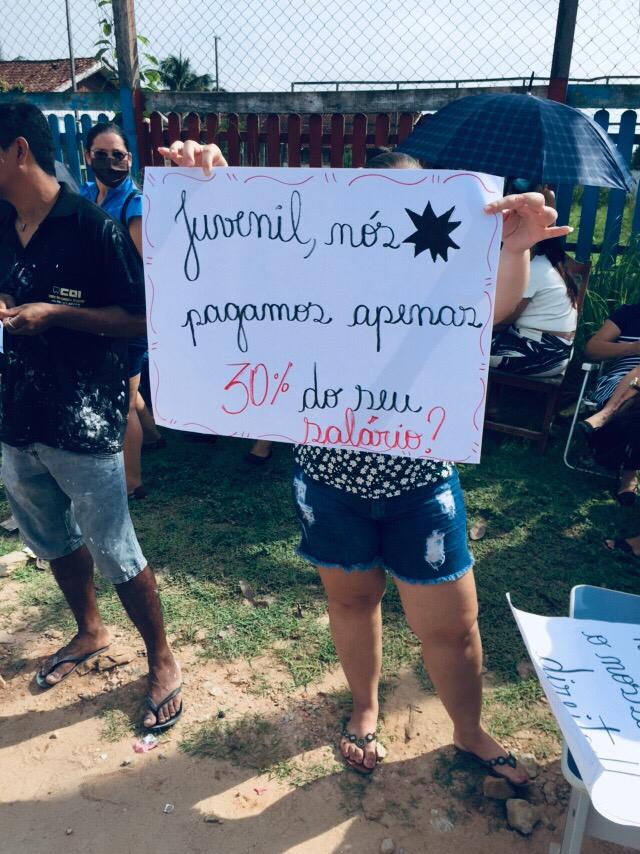 Juvenil, nós
pagamos apenas
30% do seu
salário?
COI
nosso
direit